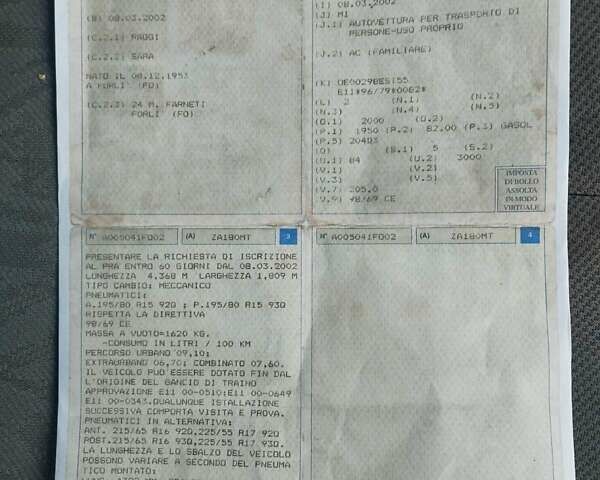 (B) 08.03.2002
(C.2.1) RAGGI
(C.2.2) SARA
NATO IL 08.12.1953
A FORLI' (FO)
(C.2.3) 24 M. FARNETI
FORLI' (FO)
(I) 08.03.2002
(J) M1
(J.1) AUTOVETTURA PER TRASPORTO DI
PERSONE-USO PROPRIO
(J.2) AC (FAMILIARE)
(K) OE00298EST55
E11*96/79*0082*
(L) 2 (N.1) (N.2)
(N.3) (N.4) (N.5)
(O.1) 2000 (O.2)
(P.1) 1950 (P.2) 82.00 (P.3) GASOL
(P.5) 204D3
(Q) (S.1) 5 (S.2)
(U.1) 84 (U.2) 3000
(V.1) (V.2)
(V.3) (V.5)
(V.7) 205.0
(V.9) 98/69 CE
IMPOSTA
DI BOLLO
ASSOLTA
IN MODO
VIRTUALE
N° A005041FO02 (A) ZA180MT 3
PRESENTARE LA RICHIESTA DI ISCRIZIONE
AL PRA ENTRO 60 GIORNI DAL 08.03.2002
LUNGHEZZA 4,368 M LARGHEZZA 1,809 M
TIPO CAMBIO: MECCANICO
PNEUMATICI:
A.195/80 R15 92Q ; P.195/80 R15 93Q
RISPETTA LA DIRETTIVA
98/69 CE
MASSA A VUOTO=1620 KG.
-CONSUMO IN LITRI / 100 KM
PERCORSO URBANO 09,10;
EXTRAURBANO 06,70; COMBINATO 07,60.
IL VEICOLO PUO ESSERE DOTATO FIN DAL
L'ORIGINE DEL GANCIO DI TRAINO
APPROVAZIONE E11 00-0510:E11 00-0649
E11 00-0343.QUALUNQUE ISTALLAZIONE
SUCCESSIVA COMPORTA VISITA E PROVA.
PNEUMATICI IN ALTERNATIVA:
ANT. 215/65 R16 92Q,225/55 R17 92Q
POST.215/65 R16 93Q,225/55 R17 93Q.
LA LUNGHEZZA E LO SBALZO DEL VEICOLO
POSSONO VARIARE A SECONDO DEL PNEUMA
TICO MONTATO:
N° A005041FO02 (A) ZA180MT 4